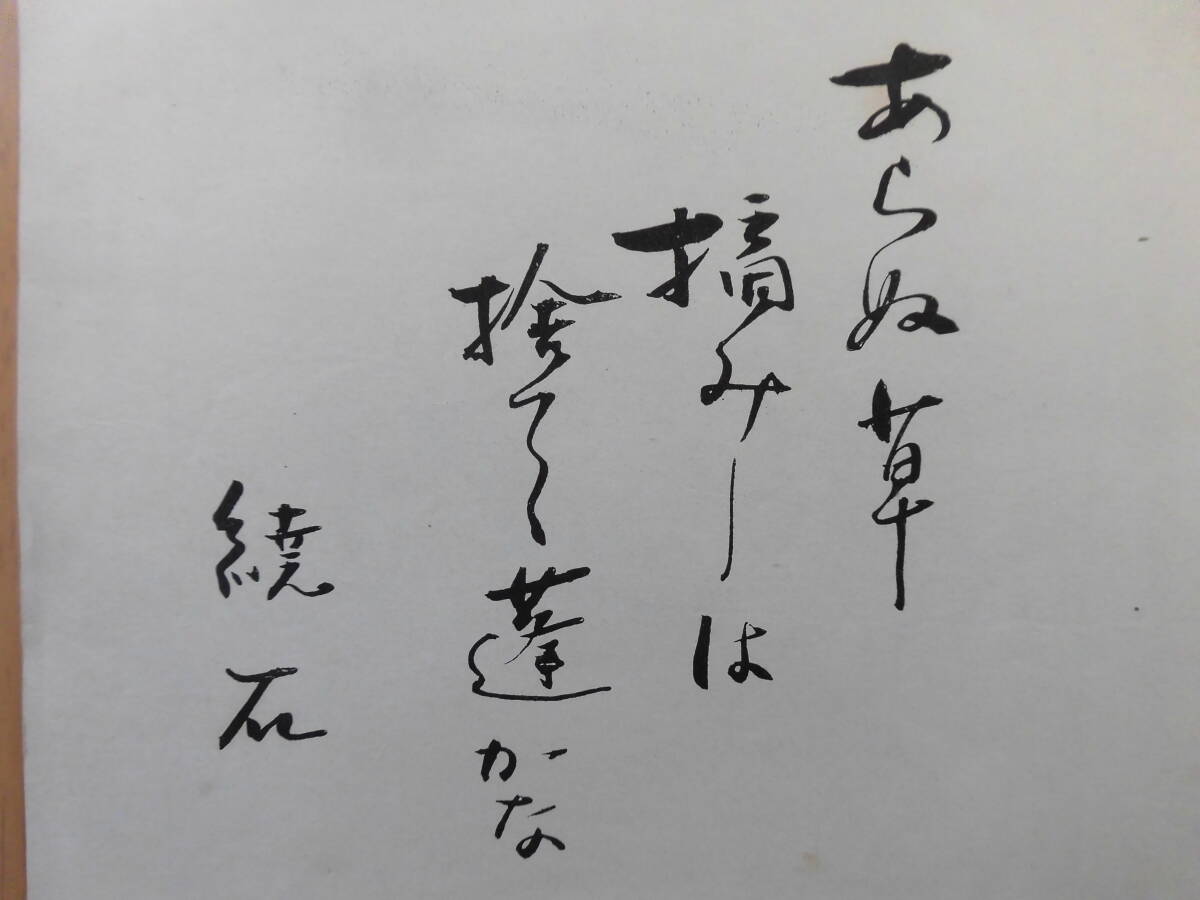 あらぬ草
摘みしは
捨てゝ蓬かな
繞石